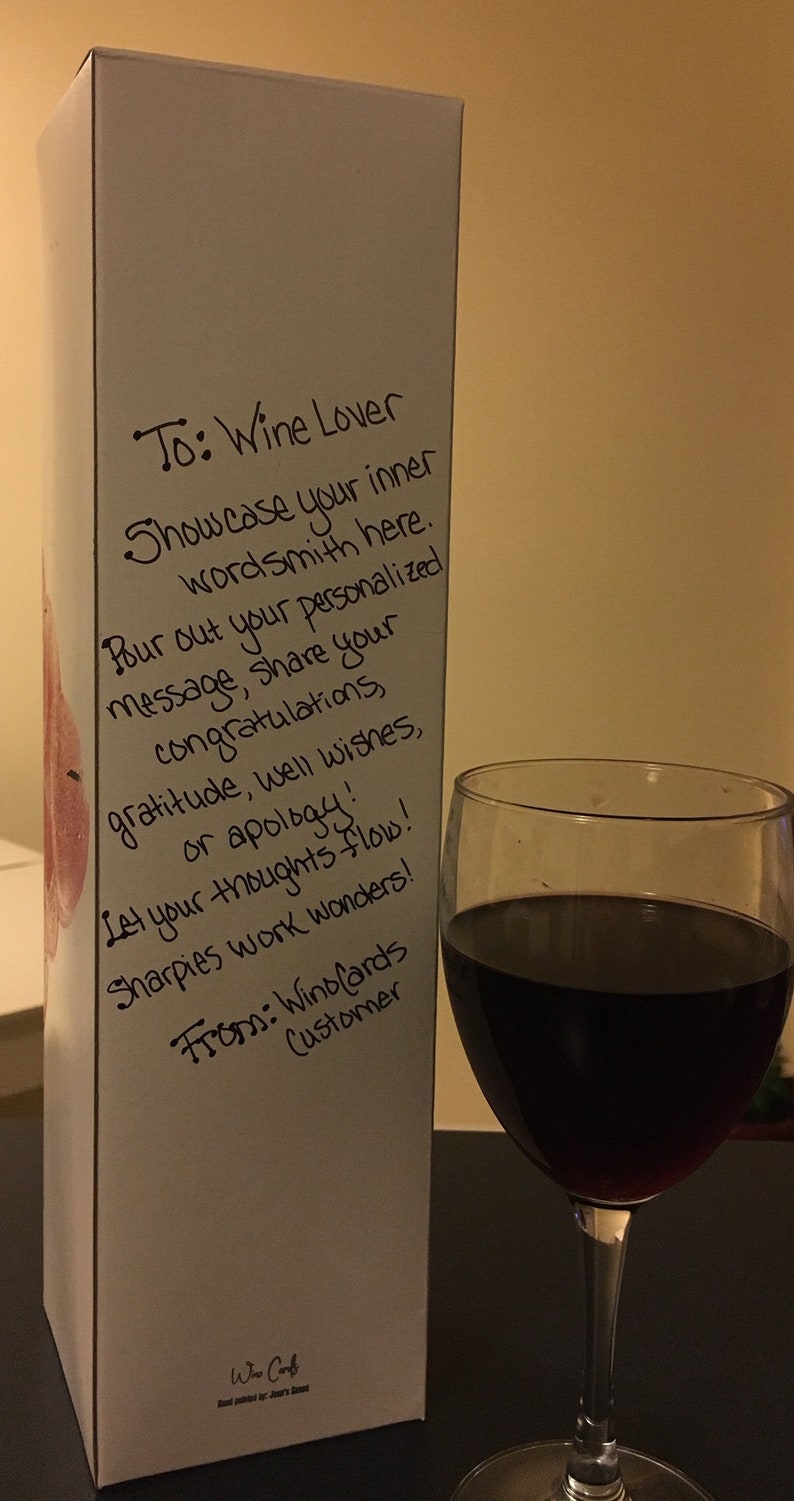 To: Wine Lover
Showcase your inner
wordsmith here.
Pour out your personalized
message, share your
congratulations,
gratitude, well wishes,
or apology!
Let your thoughts flow!
Sharpies work wonders!
From: WinoCards
Customer
Wino Cards
Hand painted by: